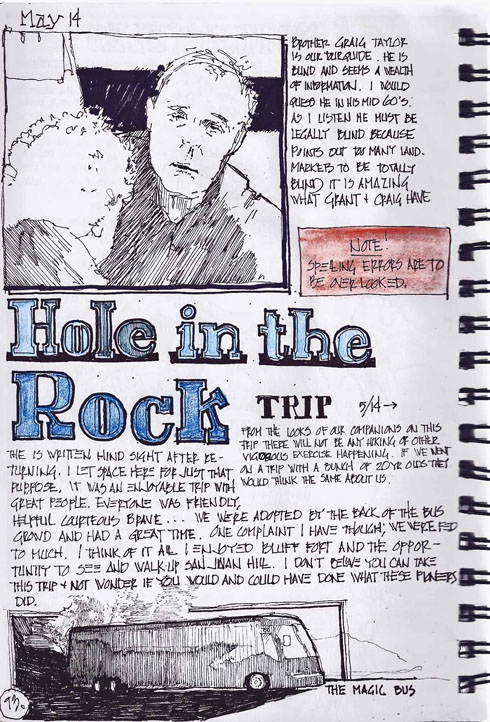 May 14
BROTHER GRAIG TAYLOR
IS OUR TOURGUIDE. HE IS
BLIND AND SEEMS A WEALTH
OF INFORMATION. I WOULD
GUESS HE IN HIS MID 60'S.
AS I LISTEN HE MUST BE
LEGALLY BLIND BECAUSE
POINTS OUT TO MANY LAND-
MARKERS TO BE TOTALLY
BLIND IT IS AMAZING
WHAT GRANT + CRAIG HAVE
NOTE!
SPELLING ERRORS ARE TO
BE OVER LOOKED.
Hole in the
Rock TRIP 5/14 →
FROM THE LOOKS OF OUR COMPANIONS ON THIS
TRIP THERE WILL NOT BE ANY HIKING OF OTHER
VIGOROUS EXERCISE HAPPENING. IF WE WENT
ON A TRIP WITH A BUNCH OF 20 YR OLDS THEY
WOULD THINK THE SAME ABOUT US.
THE IS WRITTEN HIND SIGHT AFTER RE-
TURNING. I LET SPACE HERE FOR JUST THAT
PURPOSE. IT WAS AN ENJOYABLE TRIP WITH
GREAT PEOPLE. EVERYONE WAS FRIENDLY,
HELPFUL COURTEOUS BRAVE... WE WERE ADOPTED BY THE BACK OF THE BUS
CROWD AND HAD A GREAT TIME. ONE COMPLAINT I HAVE THOUGH, WE WERE FED
TO MUCH. I THINK OF IT ALL I ENJOYED BLUFF FORT AND THE OPPOR-
TUNITY TO SEE AND WALK UP SAN JUAN HILL. I DON'T BELIVE YOU CAN TAKE
THIS TRIP + NOT WONDER IF YOU WOULD AND COULD HAVE DONE WHAT THESE PIONERS
DID.
THE MAGIC BUS
73.